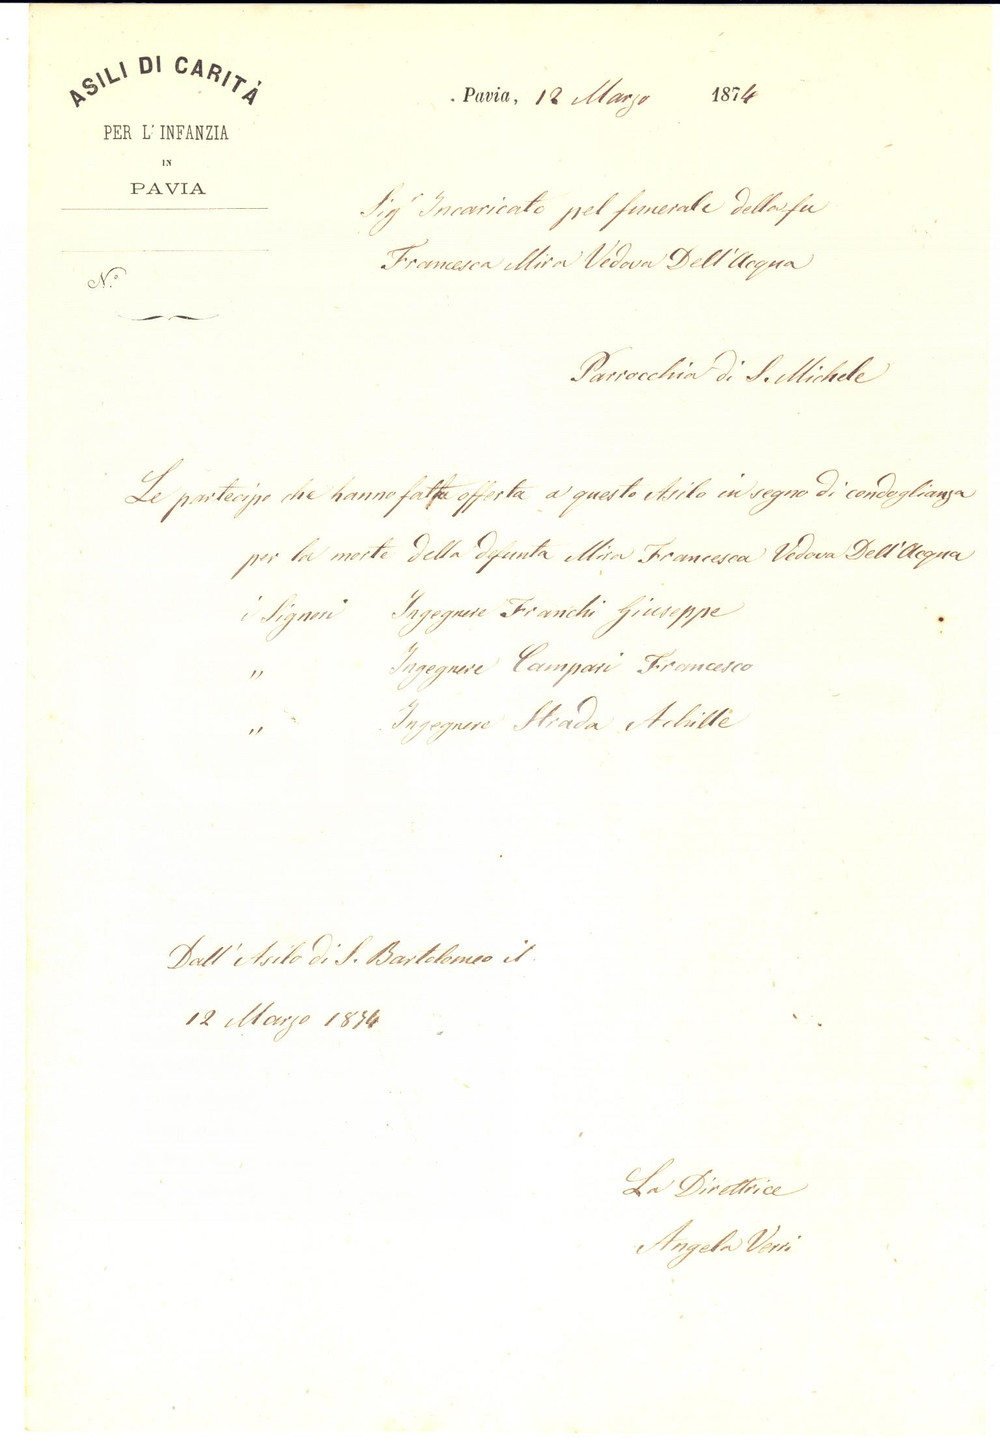 ASILI DI CARITÀ
PER L'INFANZIA
IN
PAVIA
N.°
Pavia, 12 Marzo 1874
Sig.r Incaricato pel funerale della fu
Francesca Mira Vedova Dell'Acqua
Parrocchia di S. Michele
Le partecipo che hanno fatta offerta a questo Asilo in segno di condoglianza
per la morte della defunta Mira Francesca Vedova Dell'Acqua
i Signori Ingegnere Franchi Giuseppe
„ Ingegnere Campari Francesco
„ Ingegnere Strada Achille
Dall'Asilo di S. Bartolomeo il
12 Marzo 1874
La Direttrice
Angela Verri